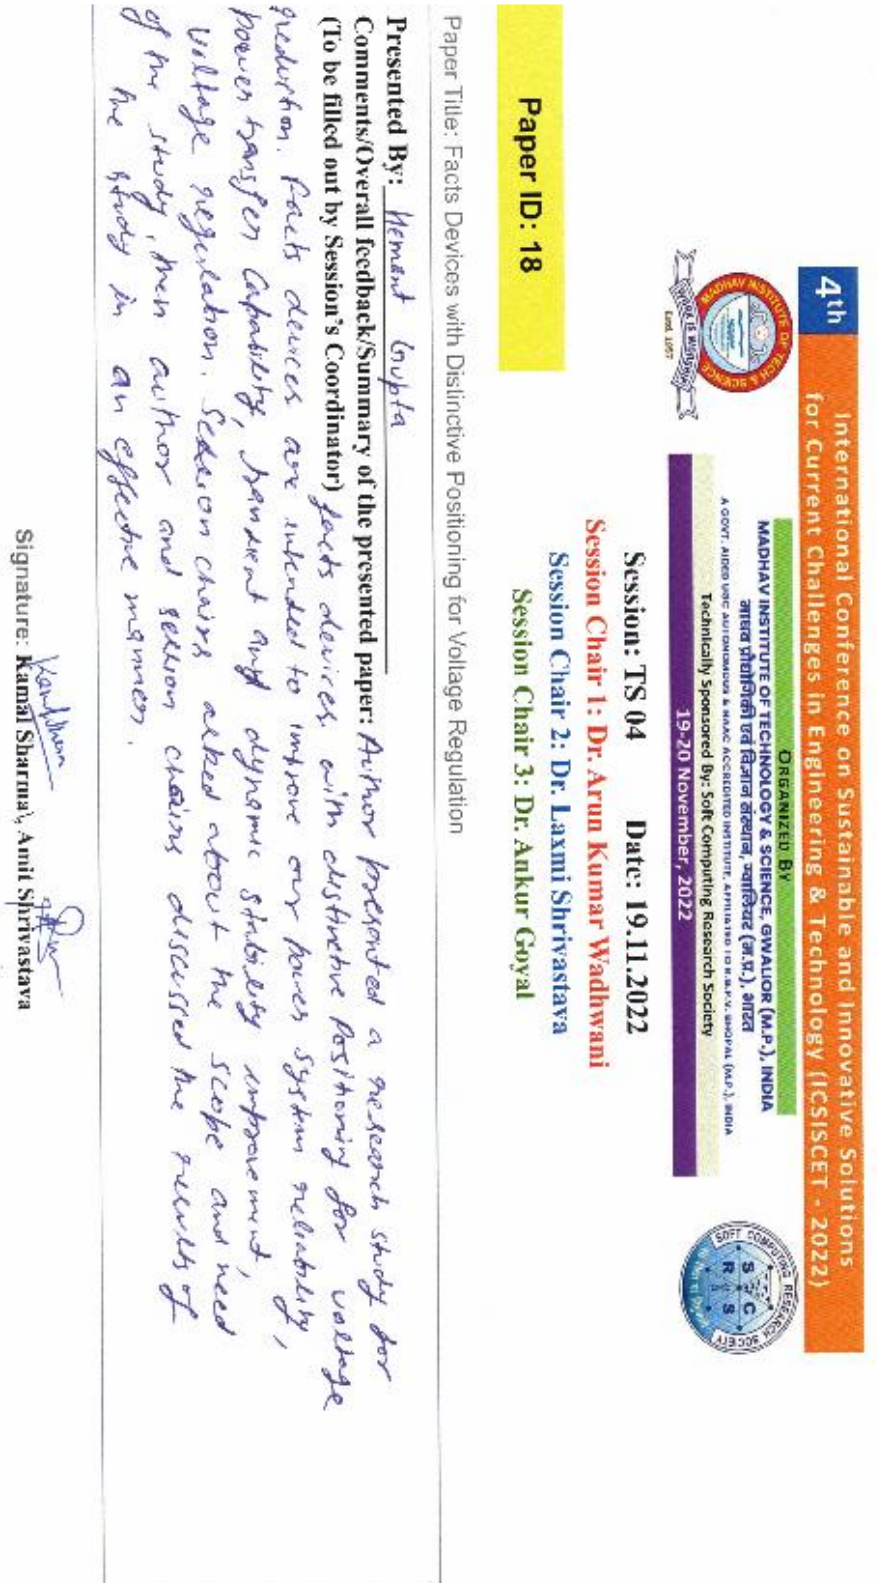 4th
International Conference on Sustainable and Innovative Solutions
for Current Challenges in Engineering & Technology (ICSISCET - 2022)
MADHAV INSTITUTE OF TECH & SCIENCE
WORK IS WORSHIP
Estd. 1957
ORGANIZED BY
MADHAV INSTITUTE OF TECHNOLOGY & SCIENCE, GWALIOR (M.P.), INDIA
माधव प्रौद्योगिकी एवं विज्ञान संस्थान, ग्वालियर (म.प्र.), भारत
A GOVT. AIDED UGC AUTONOMOUS & NAAC ACCREDITED INSTITUTE, AFFILIATED TO R.G.P.V. BHOPAL (M.P.), INDIA
Technically Sponsored By: Soft Computing Research Society
19-20 November, 2022
SOFT COMPUTING RESEARCH SOCIETY
S C R S
Session: TS 04 Date: 19.11.2022
Session Chair 1: Dr. Arun Kumar Wadhwani
Session Chair 2: Dr. Laxmi Shrivastava
Session Chair 3: Dr. Ankur Goyal
Paper ID: 18
Paper Title: Facts Devices with Distinctive Positioning for Voltage Regulation
Presented By: Hemant Gupta
Comments/Overall feedback/Summary of the presented paper: Author presented a research study for
(To be filled out by Session's Coordinator) facts devices with distinctive Positioning for voltage
reduction. Facts devices are intended to improve our power system reliability,
power transfer capability, transient and dynamic stability improvement,
voltage regulation. Session chairs asked about the scope and need
of the study, then author and session chairs discussed the results of
the study in an effective manner.
Signature: Kamal Sharma\, Amit Shrivastava